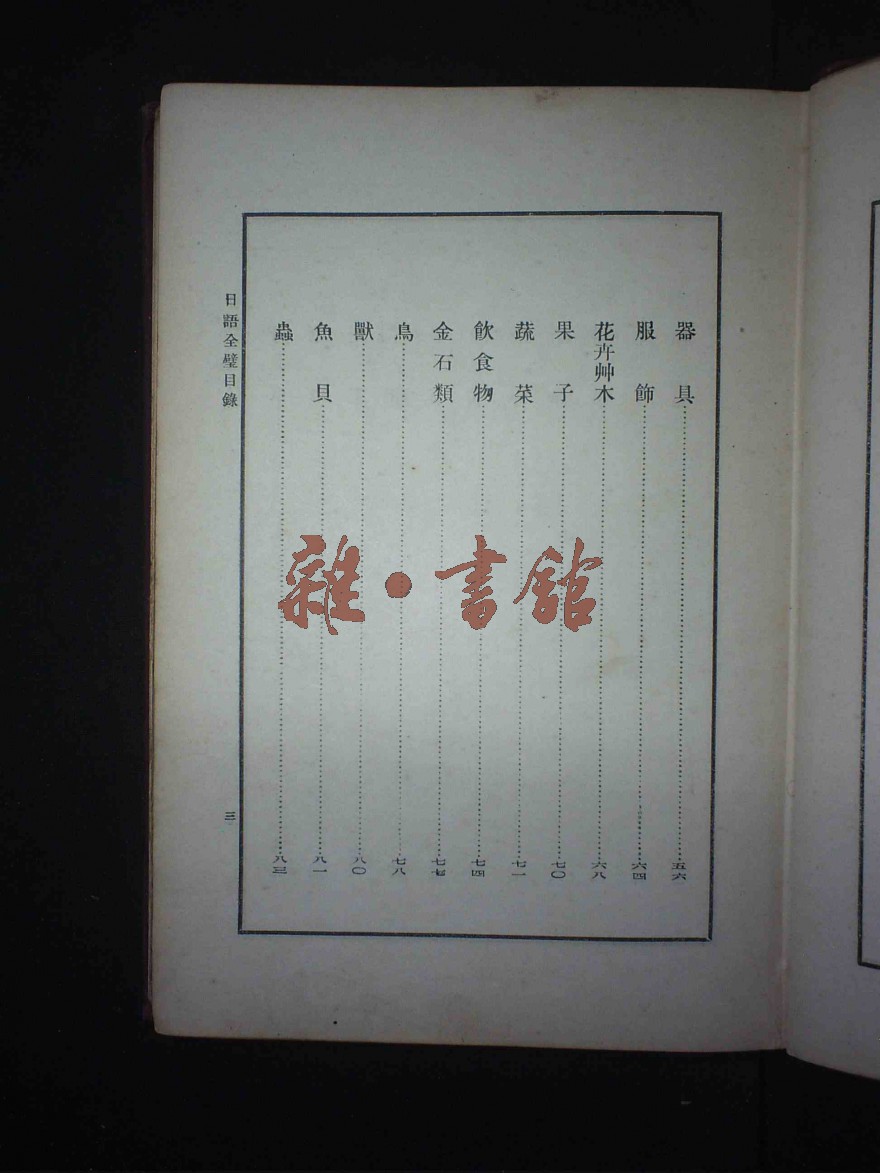 器具……五六
服飾……六四
花卉艸木……六八
果子……七〇
蔬菜……七一
飲食物……七四
金石類……七七
鳥……七八
獸……八〇
魚貝……八一
蟲……八三
日語全璧目錄
三
雜·書館